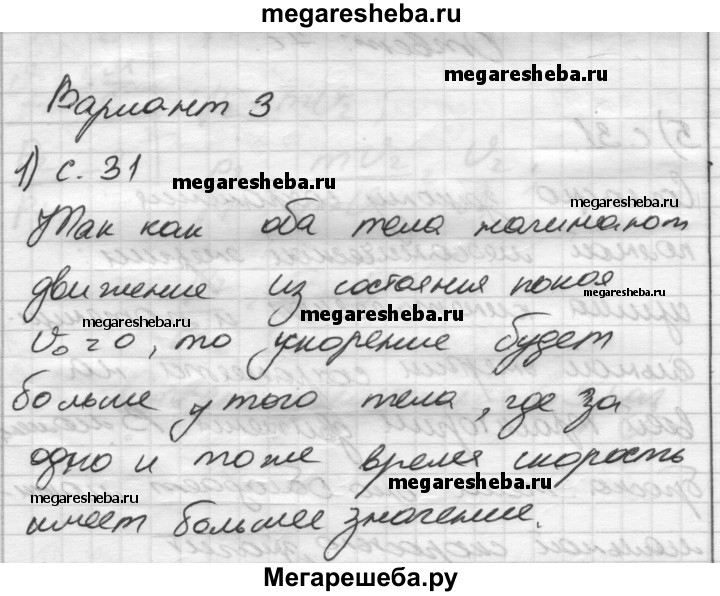 megaresheba.ru
megaresheba.ru
Вариант 3
1) с. 31
megaresheba.ru
megaresheba.ru
Так как оба тела начинают
движение из состояния покоя
megaresheba.ru
megaresheba.ru
megaresheba.ru
v₀ = 0, то ускорение будет
больше у того тела, где за
одно и тоже время скорость
megaresheba.ru
megaresheba.ru
имеет большее значение.
Мегарешеба.ру